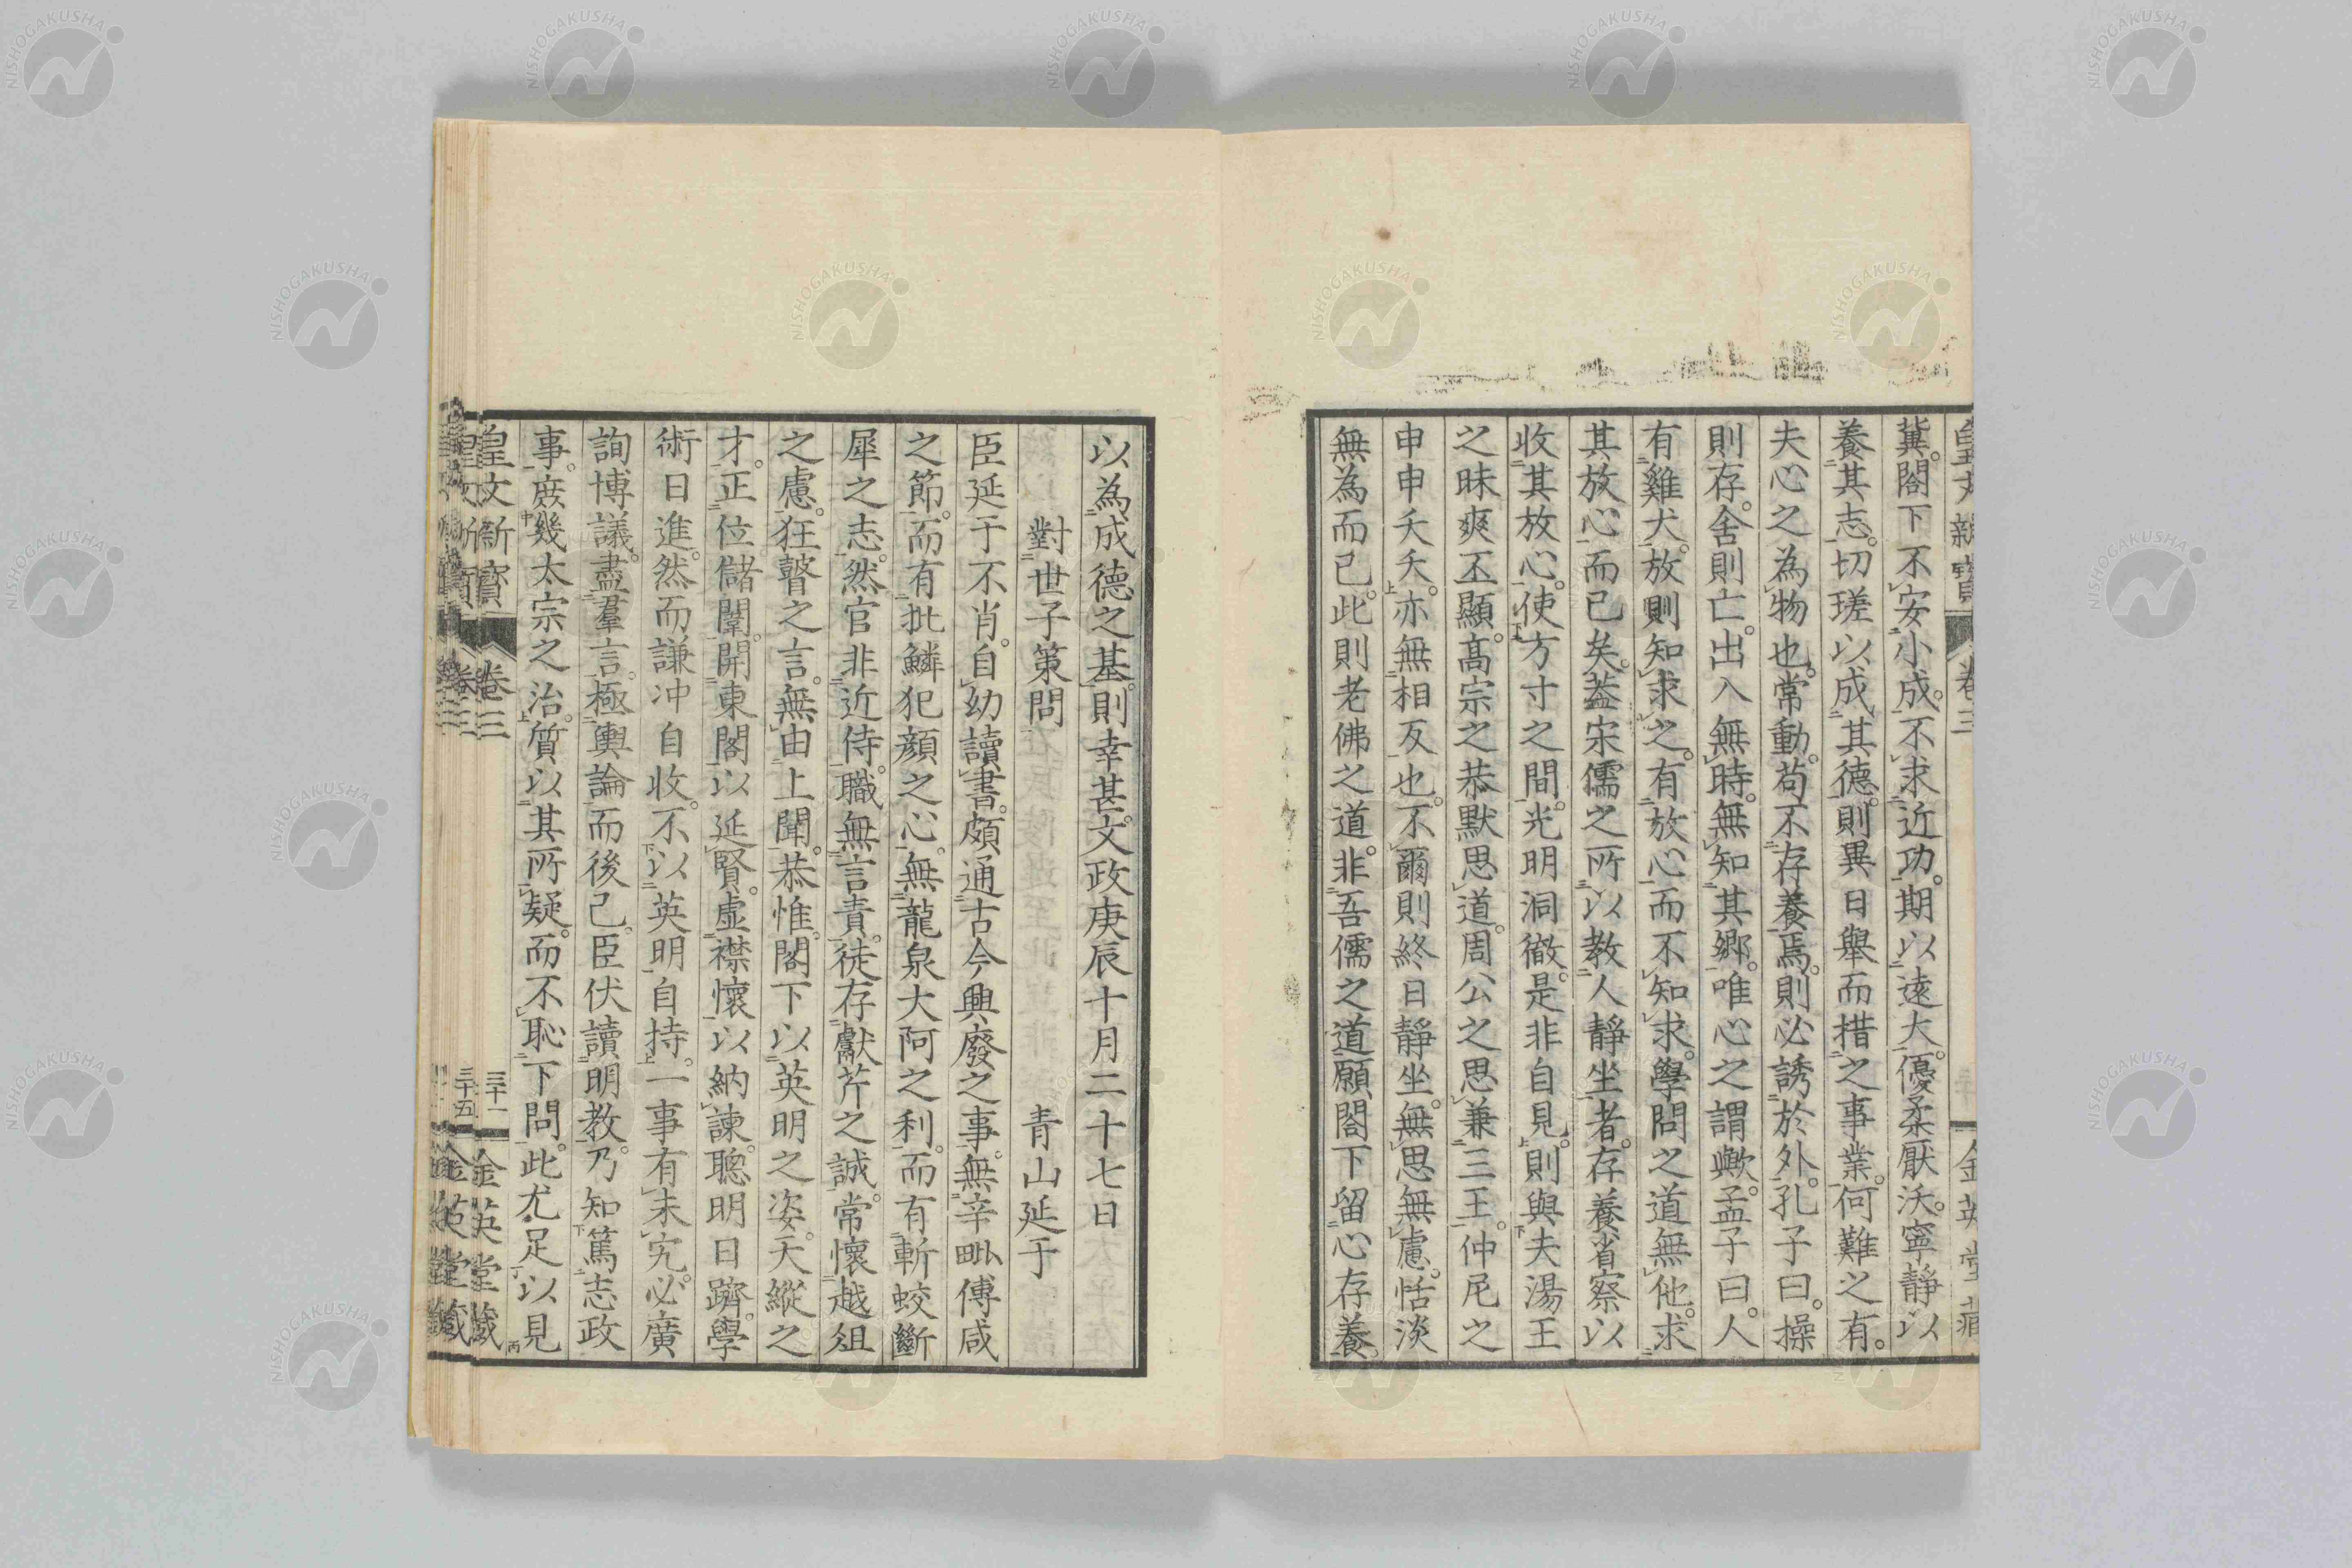 冀。閤下不安小成。不求近功。期以遠大。優柔厭沃。寧靜以
養其志。切瑳以成其德。則異日舉而措之事業。何難之有。
夫心之為物也。常動。苟不存養焉。則必誘於外。孔子曰。操
則存。舍則亡。出入無時。無知其鄉。唯心之謂歟。孟子曰。人
有雞犬放則知求之。有放心而不知求。學問之道無他。求
其放心而已矣。蓋宋儒之所以教人靜坐者。存養省察以
收其放心。使方寸之間。光明洞徹。是非自見。則與夫湯王
之昧爽丕顯。高宗之恭默思道。周公之思兼三王。仲尼之
申申夭夭。亦無相反也。不爾則終日靜坐。無思無慮。恬淡
無為而已。此則老佛之道。非吾儒之道。願閤下留心存養。
以為成德之基。則幸甚。文政庚辰十月二十七日
對世子策問 青山延于
臣延于不肖。自幼讀書。頗通古今興廢之事。無辛毗傅咸
之節。而有批鱗犯顏之心。無龍泉大阿之利。而有斬蛟斷
犀之志。然官非近侍。職無言責。徒存獻芹之誠。常懷越俎
之慮。狂瞽之言。無由上聞。恭惟。閤下以英明之姿。天縱之
才。正位儲闈。開東閤以延賢。虛襟懷以納諫。聰明日躋。學
術日進。然而謙冲自收。不以英明自持。一事有未究。必廣
詢博議。盡羣言。極輿論而後已。臣伏讀明教。乃知篤志政
事。庶幾太宗之治。質以其所疑。而不恥下問。此尤足以見
皇文新寶 卷三 三十一 金英堂藏
三十五